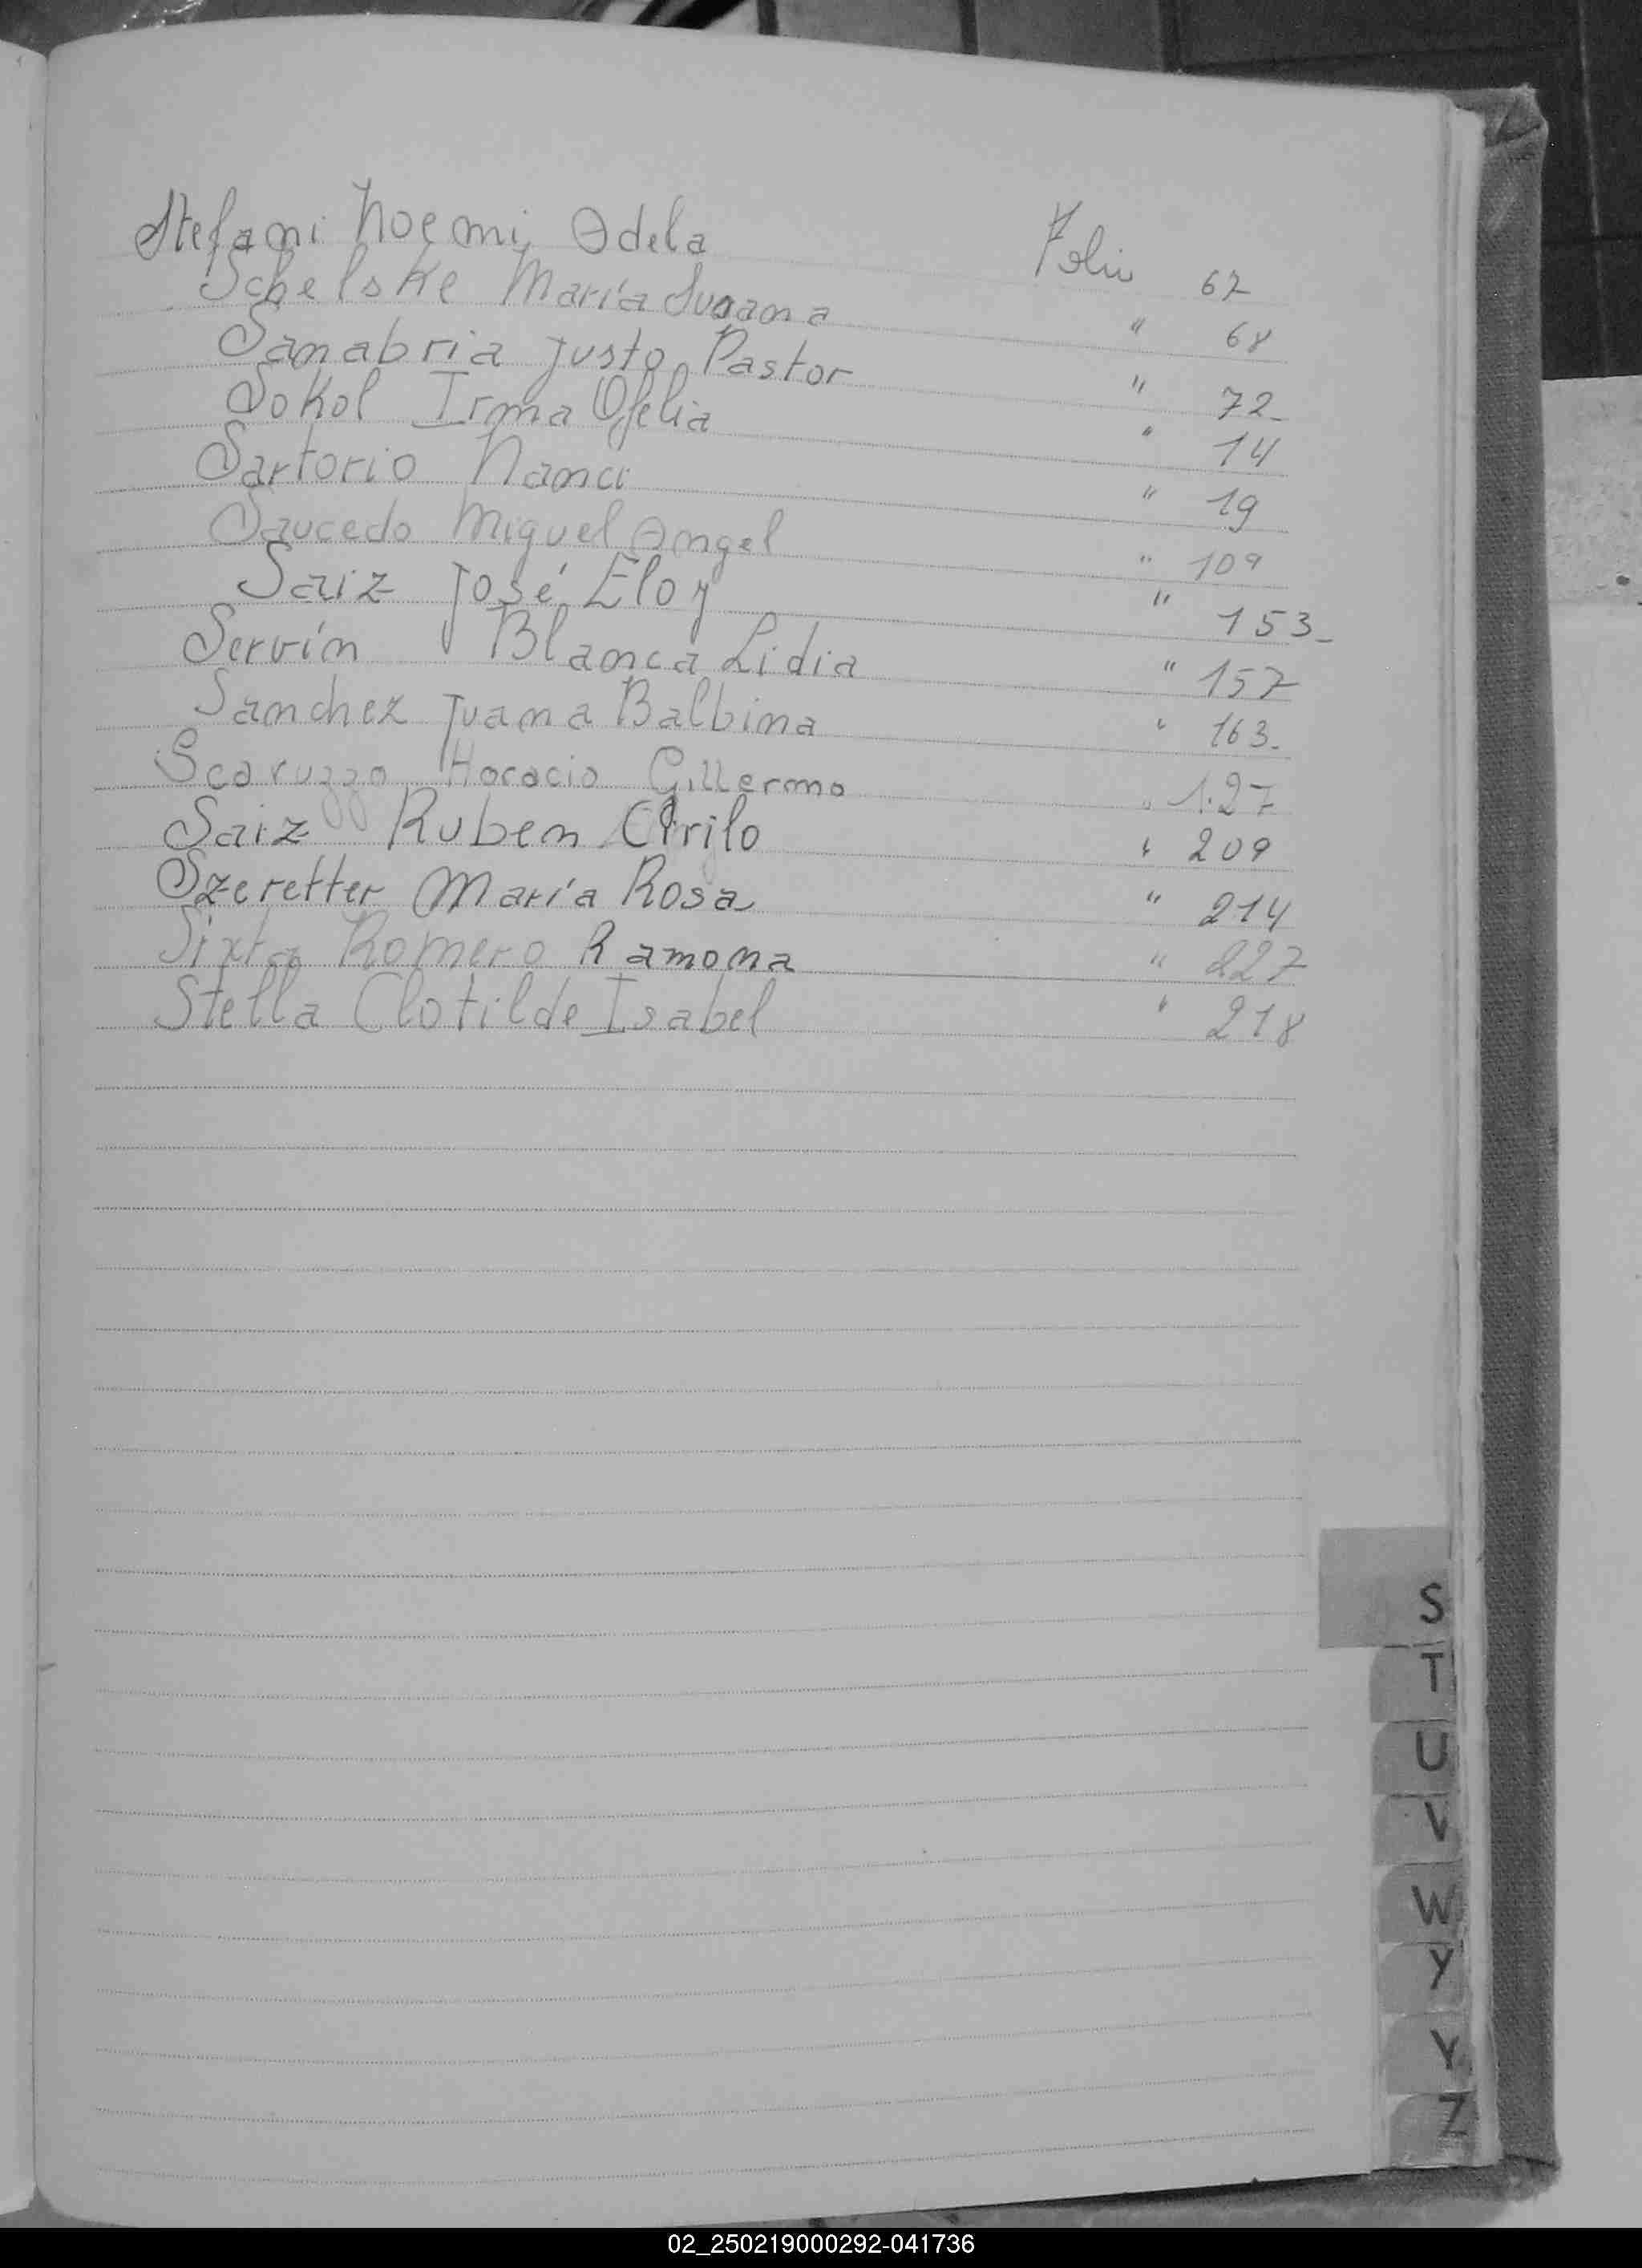 Stefani Noemi Adela Folio 67
Schelske María Susana " 68
Sanabria Justo Pastor " 72_
Sokol Irma Ofelia " 14
Sartorio Nanci " 19
Saucedo Miguel Angel " 109
Saiz José Eloy " 153_
Servín Blanca Lidia " 157
Sanchez Juana Balbina " 163_
Scaruzzo Horacio Gillermo " 127
Saiz Ruben Cirilo " 209
Szeretter María Rosa " 214
Sixta Romero Ramona " 227
Stella Clotilde Isabel " 218
S
T
U
V
W
Y
Y
Z
02_250219000292-041736